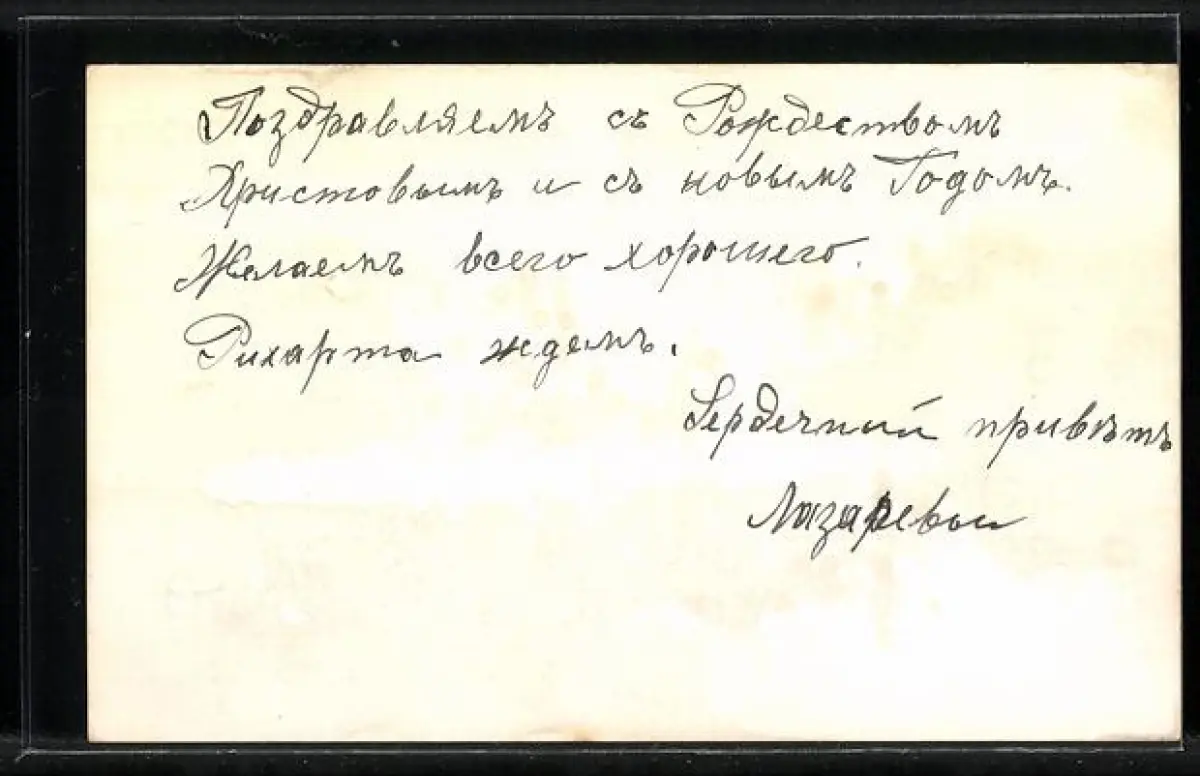 Поздравляемъ съ Рождествомъ
Христовымъ и съ новымъ Годомъ.
Желаемъ всего хорошего.
Рихарта ждемъ.
Сердечный привѣтъ
Лазаревы